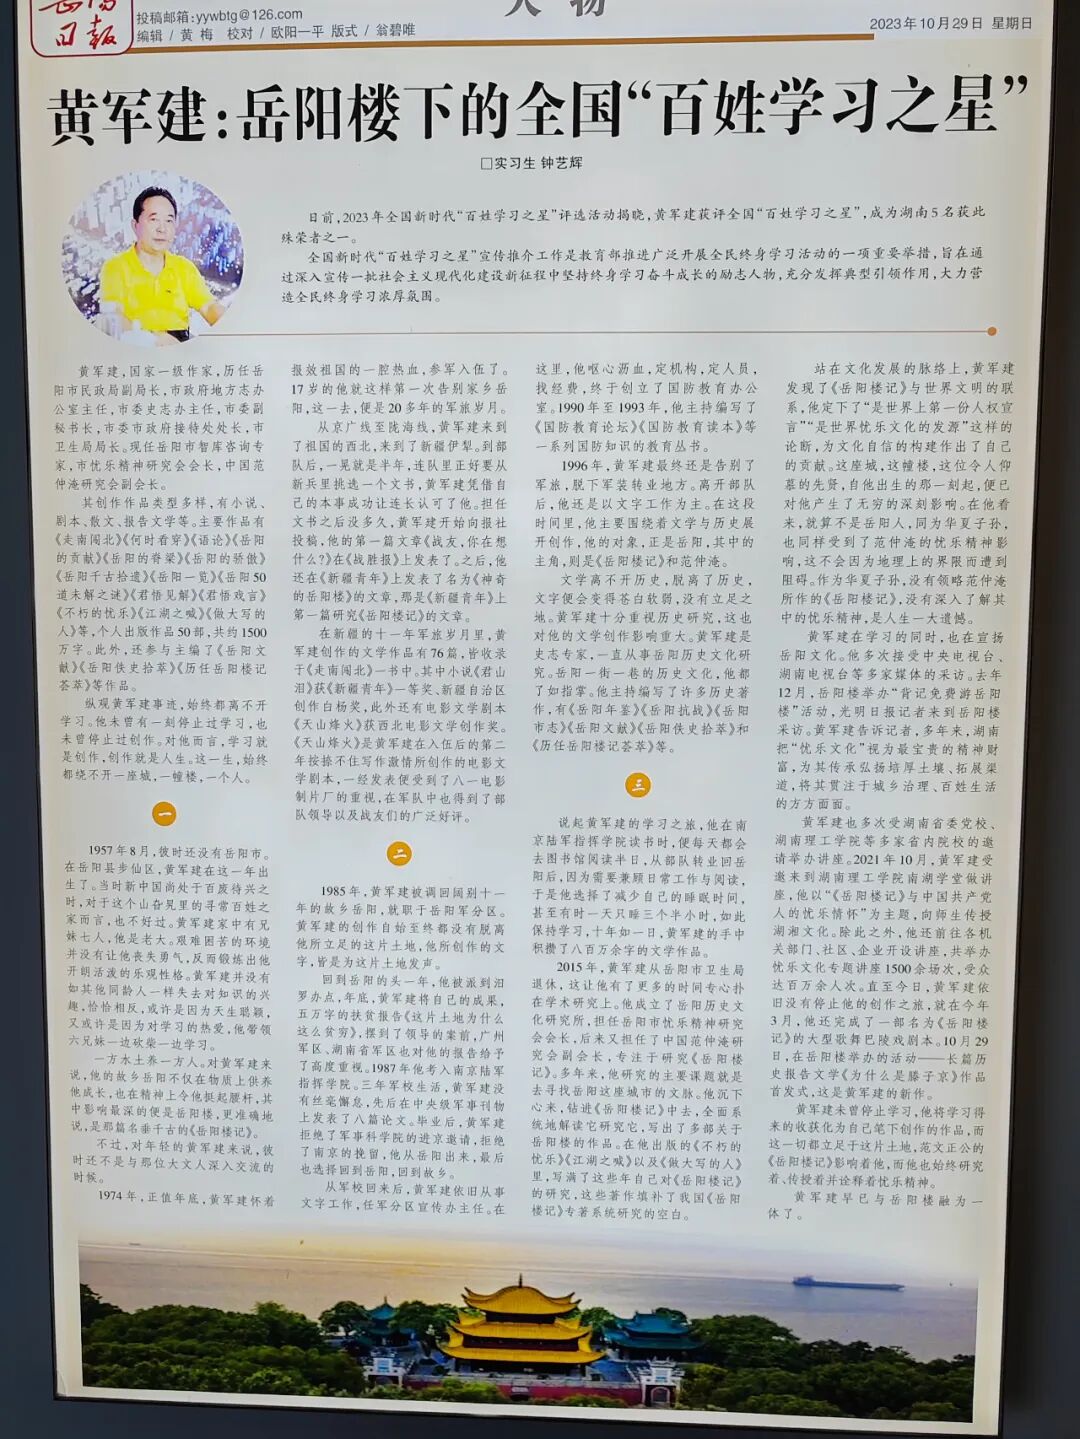 日报
投稿邮箱:yywbtg@126.com
人物
编辑 / 黄 梅 校对 / 欧阳一平 版式 / 翁碧唯
2023年10月29日 星期日
黄军建:岳阳楼下的全国“百姓学习之星”
□实习生 钟艺辉
日前,2023年全国新时代“百姓学习之星”评选活动揭晓,黄军建获评全国“百姓学习之星”,成为湖南5名获此
殊荣者之一。
全国新时代“百姓学习之星”宣传推介工作是教育部推进广泛开展全民终身学习活动的一项重要举措,旨在通
过深入宣传一批社会主义现代化建设新征程中坚持终身学习奋斗成长的励志人物,充分发挥典型引领作用,大力营
造全民终身学习浓厚氛围。
黄军建,国家一级作家,历任岳
阳市民政局副局长,市政府地方志办
公室主任,市委史志办主任,市委副
秘书长,市委市政府接待处处长,市
卫生局局长。现任岳阳市智库咨询专
家,市忧乐精神研究会会长,中国范
仲淹研究会副会长。
其创作作品类型多样,有小说、
剧本、散文、报告文学等。主要作品有
《走南闯北》《何时看穿》《语论》《岳阳
的贡献》《岳阳的脊梁》《岳阳的骄傲》
《岳阳千古拾遗》《岳阳一览》《岳阳50
道未解之谜》《君悟见解》《君悟戏言》
《不朽的忧乐》《江湖之喊》《做大写的
人》等,个人出版作品50部,共约1500
万字。此外,还参与主编了《岳阳文
献》《岳阳佚史拾萃》《历任岳阳楼记
荟萃》等作品。
纵观黄军建事迹,始终都离不开
学习。他未曾有一刻停止过学习,也
未曾停止过创作。对他而言,学习就
是创作,创作就是人生。这一生,始终
都绕不开一座城,一幢楼,一个人。
一
1957年8月,彼时还没有岳阳市。
在岳阳县步仙区,黄军建在这一年出
生了。当时新中国尚处于百废待兴之
时,对于这个山旮旯里的寻常百姓之
家而言,也不好过。黄军建家中有兄
妹七人,他是老大。艰难困苦的环境
并没有让他丧失勇气,反而锻炼出他
开朗活泼的乐观性格。黄军建并没有
如其他同龄人一样失去对知识的兴
趣,恰恰相反,或许是因为天生聪颖,
又或许是因为对学习的热爱,他带领
六兄妹一边砍柴一边学习。
一方水土养一方人。对黄军建来
说,他的故乡岳阳不仅在物质上供养
他成长,也在精神上令他挺起腰杆,其
中影响最深的便是岳阳楼,更准确地
说,是那篇名垂千古的《岳阳楼记》。
不过,对年轻的黄军建来说,彼
时还不是与那位大文人深入交流的
时候。
1974年,正值年底,黄军建怀着
报效祖国的一腔热血,参军入伍了。
17岁的他就这样第一次告别家乡岳
阳,这一去,便是20多年的军旅岁月。
从京广线至陇海线,黄军建来到
了祖国的西北,来到了新疆伊犁。到部
队后,一晃就是半年,连队里正好要从
新兵里挑选一个文书,黄军建凭借自
己的本事成功让连长认可了他。担任
文书之后没多久,黄军建开始向报社
投稿,他的第一篇文章《战友,你在想
什么?》在《战胜报》上发表了。之后,他
还在《新疆青年》上发表了名为《神奇
的岳阳楼》的文章,那是《新疆青年》上
第一篇研究《岳阳楼记》的文章。
在新疆的十一年军旅岁月里,黄
军建创作的文学作品有76篇,皆收录
于《走南闯北》一书中。其中小说《君山
泪》获《新疆青年》一等奖、新疆自治区
创作白杨奖,此外还有电影文学剧本
《天山烽火》获西北电影文学创作奖。
《天山烽火》是黄军建在入伍后的第二
年按捺不住写作激情所创作的电影文
学剧本,一经发表便受到了八一电影
制片厂的重视,在军队中也得到了部
队领导以及战友们的广泛好评。
二
1985年,黄军建被调回阔别十一
年的故乡岳阳,就职于岳阳军分区。
黄军建的创作自始至终都没有脱离
他所立足的这片土地,他所创作的文
字,皆是为这片土地发声。
回到岳阳的头一年,他被派到汨
罗办点,年底,黄军建将自己的成果,
五万字的扶贫报告《这片土地为什么
这么贫穷》,摆到了领导的案前,广州
军区、湖南省军区也对他的报告给予
了高度重视。1987年他考入南京陆军
指挥学院。三年军校生活,黄军建没
有丝毫懈怠,先后在中央级军事刊物
上发表了八篇论文。毕业后,黄军建
拒绝了军事科学院的进京邀请,拒绝
了南京的挽留,他从岳阳出来,最后
也选择回到岳阳,回到故乡。
从军校回来后,黄军建依旧从事
文字工作,任军分区宣传办主任。在
这里,他呕心沥血,定机构,定人员,
找经费,终于创立了国防教育办公
室。1990年至1993年,他主持编写了
《国防教育论坛》《国防教育读本》等
一系列国防知识的教育丛书。
1996年,黄军建最终还是告别了
军旅,脱下军装转业地方。离开部队
后,他还是以文字工作为主。在这段
时间里,他主要围绕着文学与历史展
开创作,他的对象,正是岳阳,其中的
主角,则是《岳阳楼记》和范仲淹。
文学离不开历史,脱离了历史,
文字便会变得苍白软弱,没有立足之
地。黄军建十分重视历史研究,这也
对他的文学创作影响重大。黄军建是
史志专家,一直从事岳阳历史文化研
究。岳阳一街一巷的历史文化,他都
了如指掌。他主持编写了许多历史著
作,有《岳阳年鉴》《岳阳抗战》《岳阳
市志》《岳阳文献》《岳阳佚史拾萃》和
《历任岳阳楼记荟萃》等。
三
说起黄军建的学习之旅,他在南
京陆军指挥学院读书时,便每天都会
去图书馆阅读半日,从部队转业回岳
阳后,因为需要兼顾日常工作与阅读,
于是他选择了减少自己的睡眠时间,
甚至有时一天只睡三个半小时,如此
保持学习,十年如一日,黄军建的手中
积攒了八百万余字的文学作品。
2015年,黄军建从岳阳市卫生局
退休,这让他有了更多的时间专心扑
在学术研究上。他成立了岳阳历史文
化研究所,担任岳阳市忧乐精神研究
会会长,后来又担任了中国范仲淹研
究会副会长,专注于研究《岳阳楼
记》。多年来,他研究的主要课题就是
去寻找岳阳这座城市的文脉。他沉下
心来,钻进《岳阳楼记》中去,全面系
统地解读它研究它,写出了多部关于
岳阳楼的作品。在他出版的《不朽的
忧乐》《江湖之喊》以及《做大写的人》
里,写满了这些年自己对《岳阳楼记》
的研究,这些著作填补了我国《岳阳
楼记》专著系统研究的空白。
站在文化发展的脉络上,黄军建
发现了《岳阳楼记》与世界文明的联
系,他定下了“是世界上第一份人权宣
言”“是世界忧乐文化的发源”这样的
论断,为文化自信的构建作出了自己
的贡献。这座城,这幢楼,这位令人仰
慕的先贤,自他出生的那一刻起,便已
对他产生了无穷的深刻影响。在他看
来,就算不是岳阳人,同为华夏子孙,
也同样受到了范仲淹的忧乐精神影
响,这不会因为地理上的界限而遭到
阻碍。作为华夏子孙,没有领略范仲淹
所作的《岳阳楼记》,没有深入了解其
中的忧乐精神,是人生一大遗憾。
黄军建在学习的同时,也在宣扬
岳阳文化。他多次接受中央电视台、
湖南电视台等多家媒体的采访。去年
12月,岳阳楼举办“背记免费游岳阳
楼”活动,光明日报记者来到岳阳楼
采访。黄军建告诉记者,多年来,湖南
把“忧乐文化”视为最宝贵的精神财
富,为其传承弘扬培厚土壤、拓展渠
道,将其贯注于城乡治理、百姓生活
的方方面面。
黄军建也多次受湖南省委党校、
湖南理工学院等多家省内院校的邀
请举办讲座。2021年10月,黄军建受
邀来到湖南理工学院南湖学堂做讲
座,他以“《岳阳楼记》与中国共产党
人的忧乐情怀”为主题,向师生传授
湖湘文化。除此之外,他还前往各机
关部门、社区、企业开设讲座,共举办
忧乐文化专题讲座1500余场次,受众
达百万余人次。直至今日,黄军建依
旧没有停止他的创作之旅,就在今年
3月,他还完成了一部名为《岳阳楼
记》的大型歌舞巴陵戏剧本。10月29
日,在岳阳楼举办的活动——长篇历
史报告文学《为什么是滕子京》作品
首发式,这是黄军建的新作。
黄军建未曾停止学习,他将学习得
来的收获化为自己笔下创作的作品,而
这一切都立足于这片土地,范文正公的
《岳阳楼记》影响着他,而他也始终研究
着、传授着并诠释着忧乐精神。
黄军建早已与岳阳楼融为一
体了。